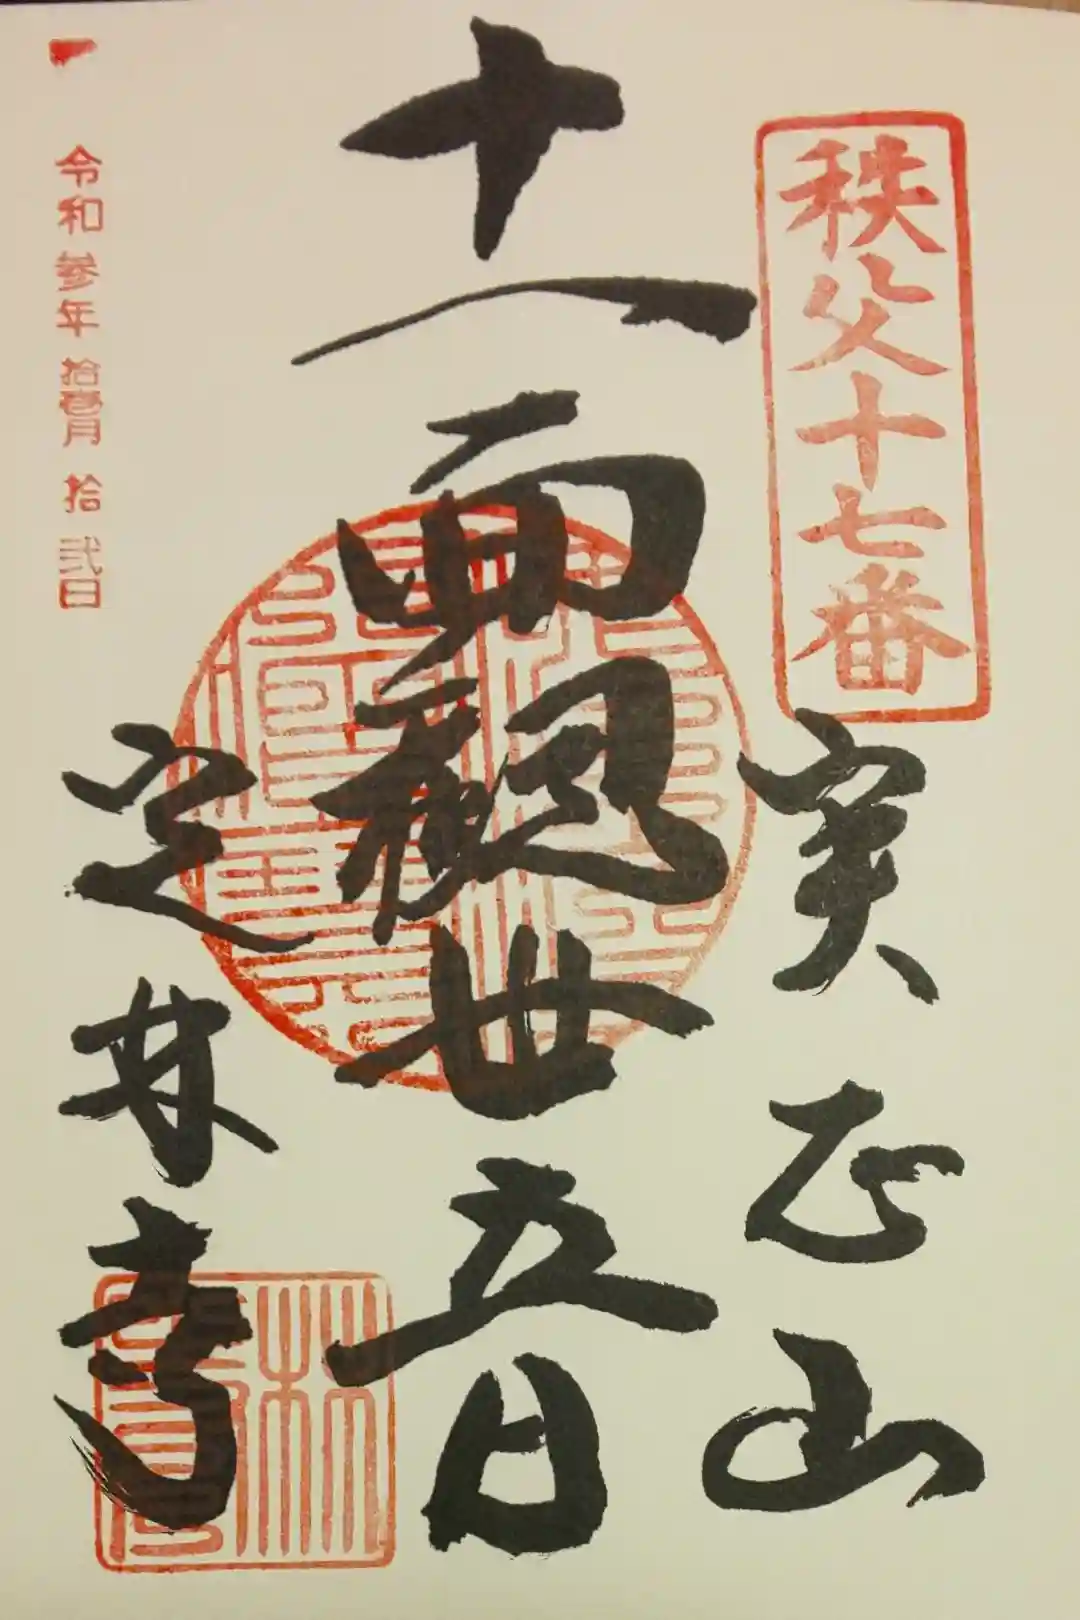 秩父十七番
実正山
十一面観世五日
定林寺
令和参年拾壱月拾弐日